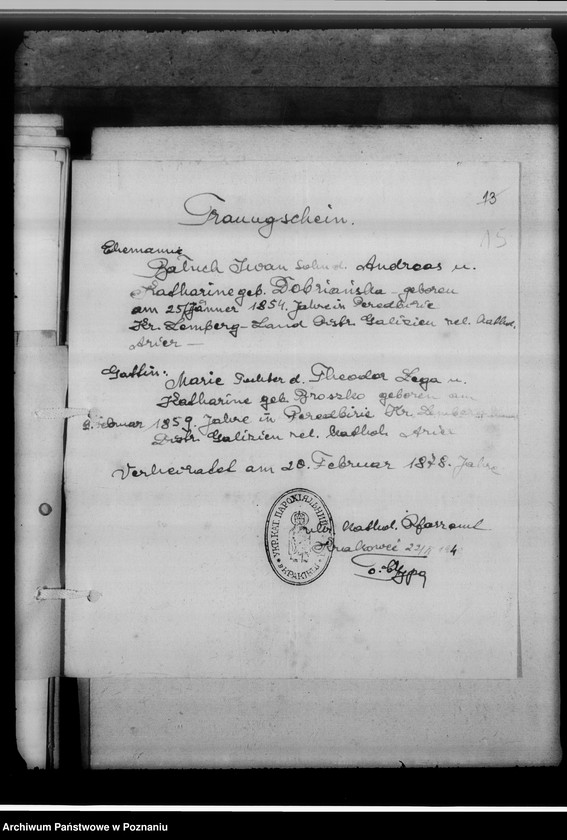 13
15
Trauugschein.
Ehemann:
Baluch Iwan Sohn d. Andreas u.
Katharine geb. Dobriańska - geboren
am 25 Jänner 1854. Jahre in Peredbirie
Kr. Lemberg-Land Distr. Galizien rel. kathol.
Arier -
Gattin: Marie Tochter d. Theodor Lega u.
Katharine geb. Broszko geboren am
Februar 1859. Jahre in Peredbirie Kr. Lemberg
Distr. Galizien rel. kathol. Arier
Verheiratet am 20. Februar 1878. Jahre
УКР. КАТ. ПАРОХІЯЛЬНИЙ
kathol. Pfarramt
Krakoweć
Archiwum Państwowe w Poznaniu